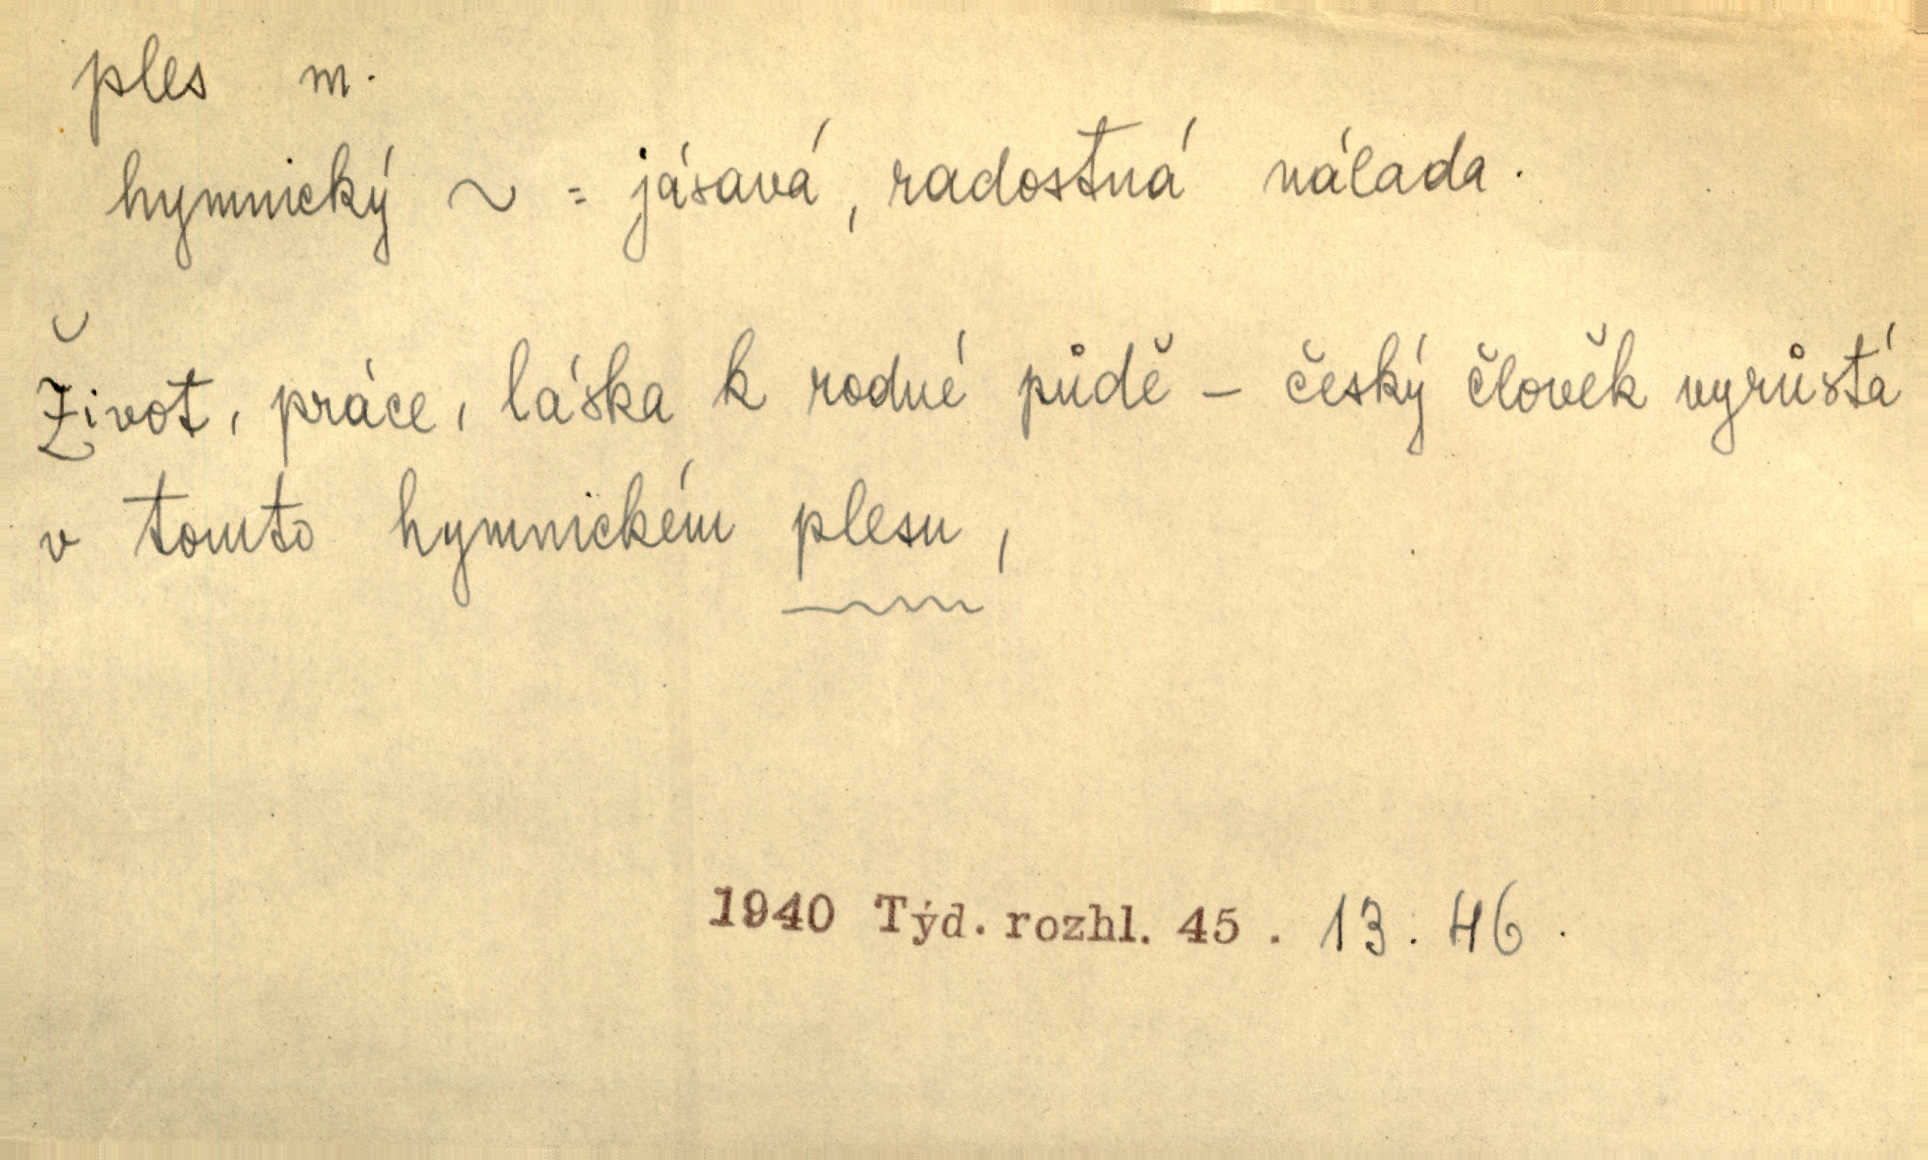 ples m.
hymnický ~ = jásavá, radostná nálada.
Život, práce, láska k rodné půdě – český člověk vyrůstá
v tomto hymnickém plesu,
1940 Týd. rozhl. 45. 13. 46.